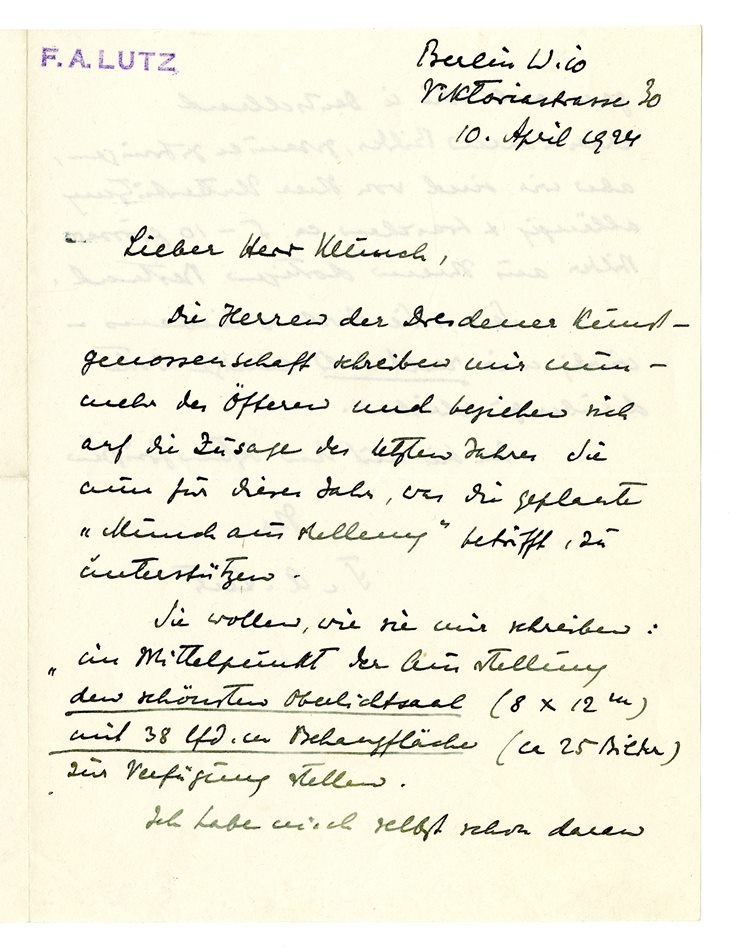 F. A. LUTZ
Berlin W. 10
Viktoriastrasse 30
10. April 1924
Lieber Herr Munch,
Die Herren der Dresdener Kunst-
genossenschaft schreiben mir nun-
mehr des Öfteren und beziehen sich
auf die Zusage des letzten Jahres sie
nun für dieses Jahr, was die geplante
„Munchausstellung" betrifft, zu
unterstützen.
Sie wollen, wie sie mir schreiben:
„im Mittelpunkt der Ausstellung
den schönsten Oberlichtsaal (8 x 12 m)
mit 38 lfd. m Behangfläche (ca 25 Bilder)
zur Verfügung stellen.
Ich habe mich selbst schon daran